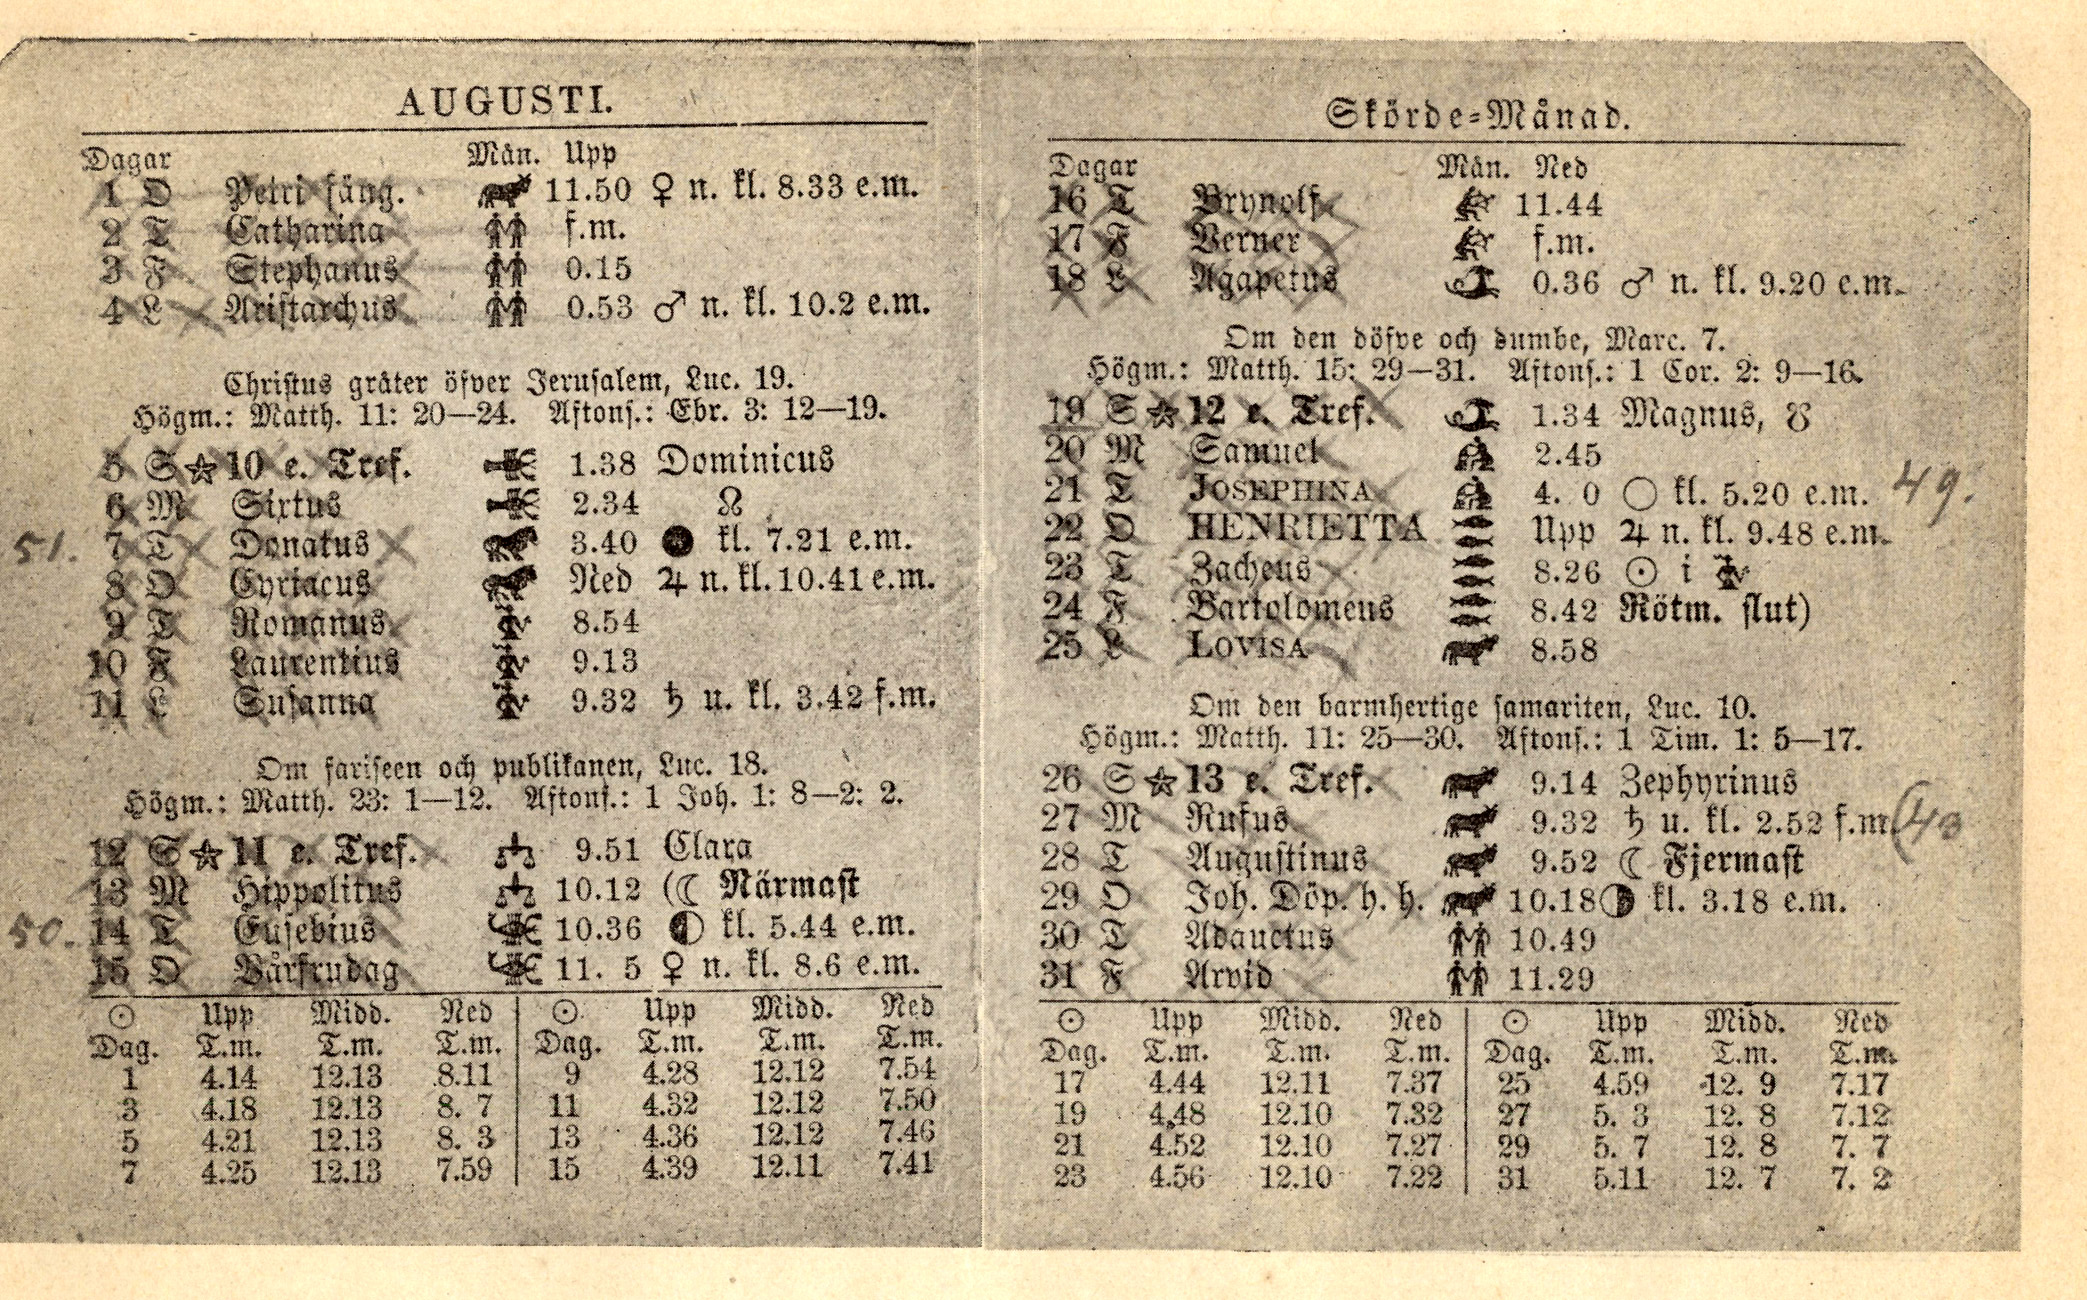 AUGUSTI.
Dagar Mån. Upp
1 O Petri fäng. 11.50 ♀ n. kl. 8.33 e.m.
2 T Catharina f.m.
3 F Stephanus 0.15
4 L Aristarchus 0.53 ♂ n. kl. 10.2 e.m.
Christus gråter öfver Jerusalem, Luc. 19.
Högm.: Matth. 11: 20—24. Aftons.: Ebr. 3: 12—19.
5 S ☆ 10 e. Tref. 1.38 Dominicus
6 M Sixtus 2.34 ☊
51. 7 T Donatus 3.40 ● kl. 7.21 e.m.
8 O Cyriacus Ned ♃ n. kl. 10.41 e.m.
9 T Romanus 8.54
10 F Laurentius 9.13
11 L Susanna 9.32 ♄ u. kl. 3.42 f.m.
Om fariseen och publikanen, Luc. 18.
Högm.: Matth. 23: 1—12. Aftons.: 1 Joh. 1: 8—2: 2.
12 S ☆ 11 e. Tref. ♎ 9.51 Clara
13 M Hippolitus ♎ 10.12 (☾ Närmast
50. 14 T Eusebius 10.36 ◐ kl. 5.44 e.m.
15 O Vårfrudag 11. 5 ♀ n. kl. 8.6 e.m.
☉ Upp Midd. Ned ☉ Upp Midd. Ned
Dag. T.m. T.m. T.m. Dag. T.m. T.m. T.m.
1 4.14 12.13 8.11 9 4.28 12.12 7.54
3 4.18 12.13 8. 7 11 4.32 12.12 7.50
5 4.21 12.13 8. 3 13 4.36 12.12 7.46
7 4.25 12.13 7.59 15 4.39 12.11 7.41
Skörde-Månad.
Dagar Mån. Ned
16 T Brynolf 11.44
17 F Verner f.m.
18 L Agapetus 0.36 ♂ n. kl. 9.20 e.m.
Om den döfve och dumbe, Marc. 7.
Högm.: Matth. 15: 29—31. Aftons.: 1 Cor. 2: 9—16.
19 S ☆ 12 e. Tref. 1.34 Magnus, ☋
20 M Samuel 2.45
21 T JOSEPHINA 4. 0 ○ kl. 5.20 e.m. 49.
22 O HENRIETTA Upp ♃ n. kl. 9.48 e.m.
23 T Zacheus 8.26 ☉ i
24 F Bartolomeus 8.42 Rötm. slut)
25 L LOVISA 8.58
Om den barmhertige samariten, Luc. 10.
Högm.: Matth. 11: 25—30. Aftons.: 1 Tim. 1: 5—17.
26 S ☆ 13 e. Tref. 9.14 Zephyrinus
27 M Rufus 9.32 ♄ u. kl. 2.52 f.m.
28 T Augustinus 9.52 ☾ Fjermast
29 O Joh. Döp. h. h. 10.18 ◑ kl. 3.18 e.m.
30 T Adauctus 10.49
31 F Arvid 11.29
☉ Upp Midd. Ned ☉ Upp Midd. Ned
Dag. T.m. T.m. T.m. Dag. T.m. T.m. T.m.
17 4.44 12.11 7.37 25 4.59 12. 9 7.17
19 4.48 12.10 7.32 27 5. 3 12. 8 7.12
21 4.52 12.10 7.27 29 5. 7 12. 8 7. 7
23 4.56 12.10 7.22 31 5.11 12. 7 7. 2